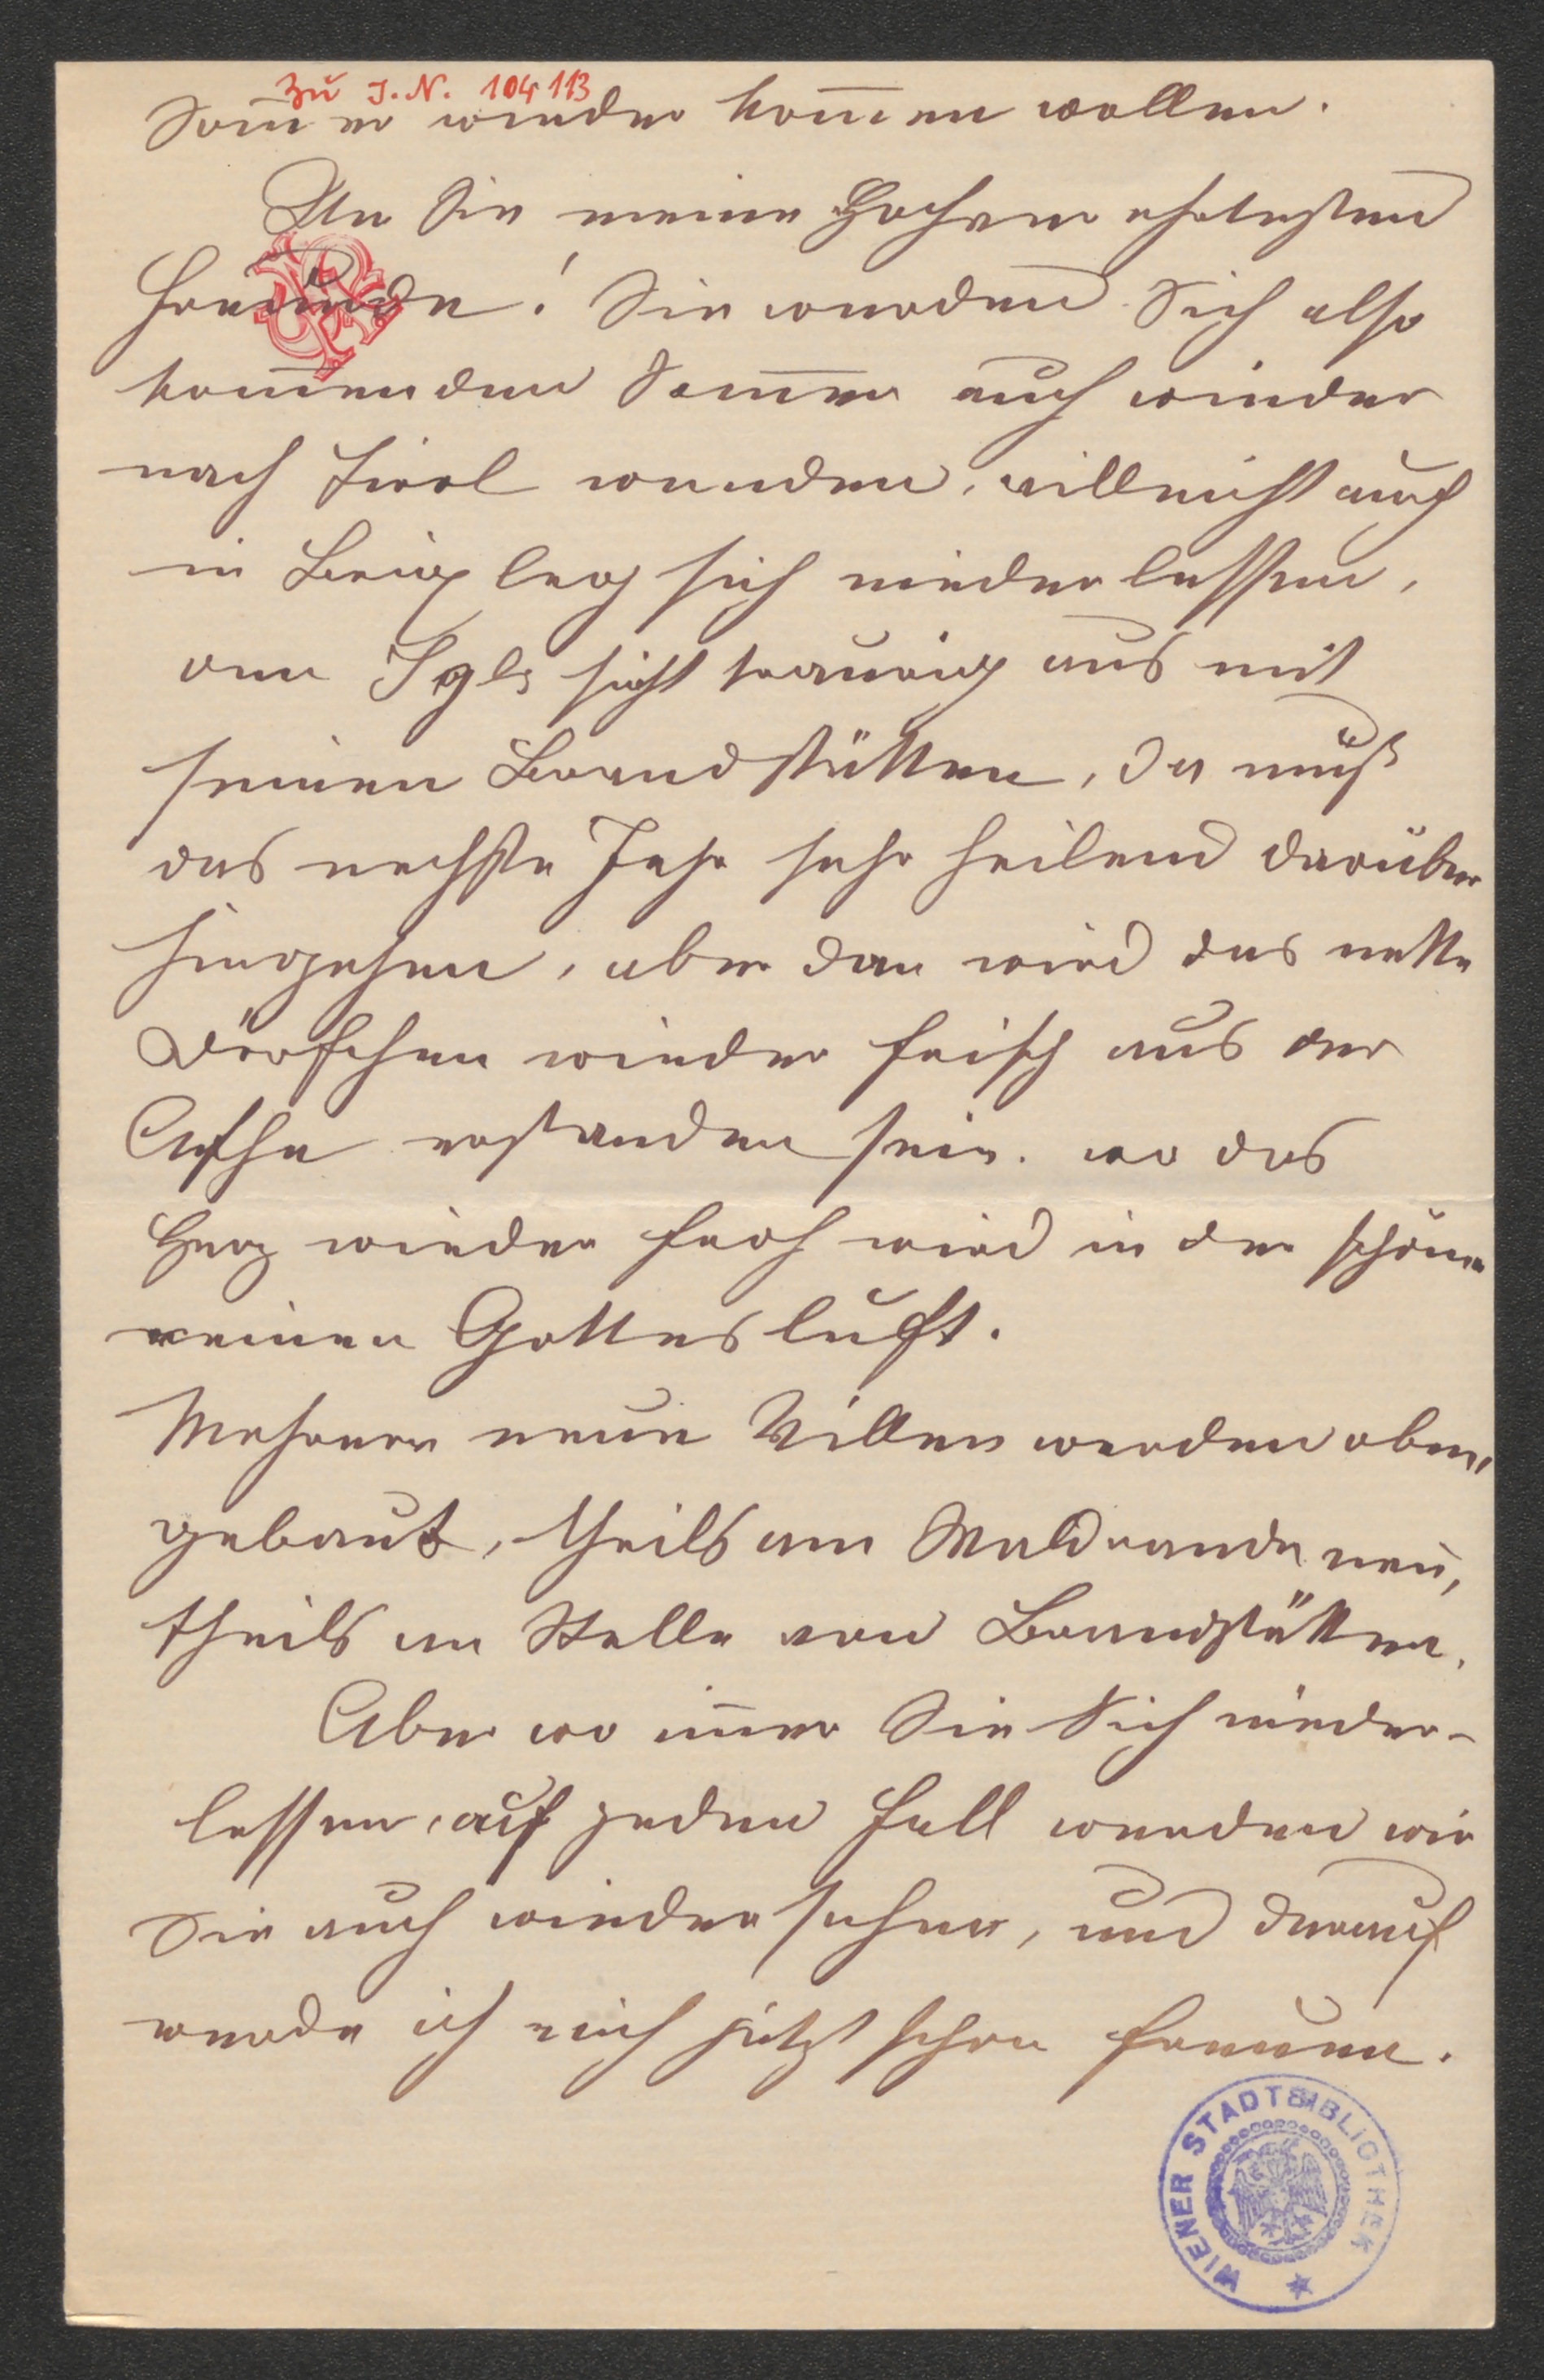 zu J.N. 104113
Som̅er wieder kom̅en wollen.
Un Sie meine Hochverehrtesten
Freunde! Sie werden Sich also
kom̅enden Som̅er auch wieder
nach Tirol wenden, villeicht auch
in Brixleg sich niederlassen,
den Igls sieht traurig aus mit
seinen Brandstätten, da muß
das nechste Jahr sehr heilend darüber
hingehen, aber dan wird das nette
Dörfchen wieder frisch aus der
Asche erstanden sein. wo das
Herz wieder froh wird in der schönen
reinen Gottesluft.
Mehrere neue Villen werden oben,
gebaut, theils am Waldrande neu,
theils an Stelle von Brandstätten.
Aber wo im̅er Sie Sich nieder-
lassen, auf jeden Fall werden wir
Sie auch wiedersehen, und darauf
werde ich mich jetzt schon freuen.
WIENER STADTBIBLIOTHEK